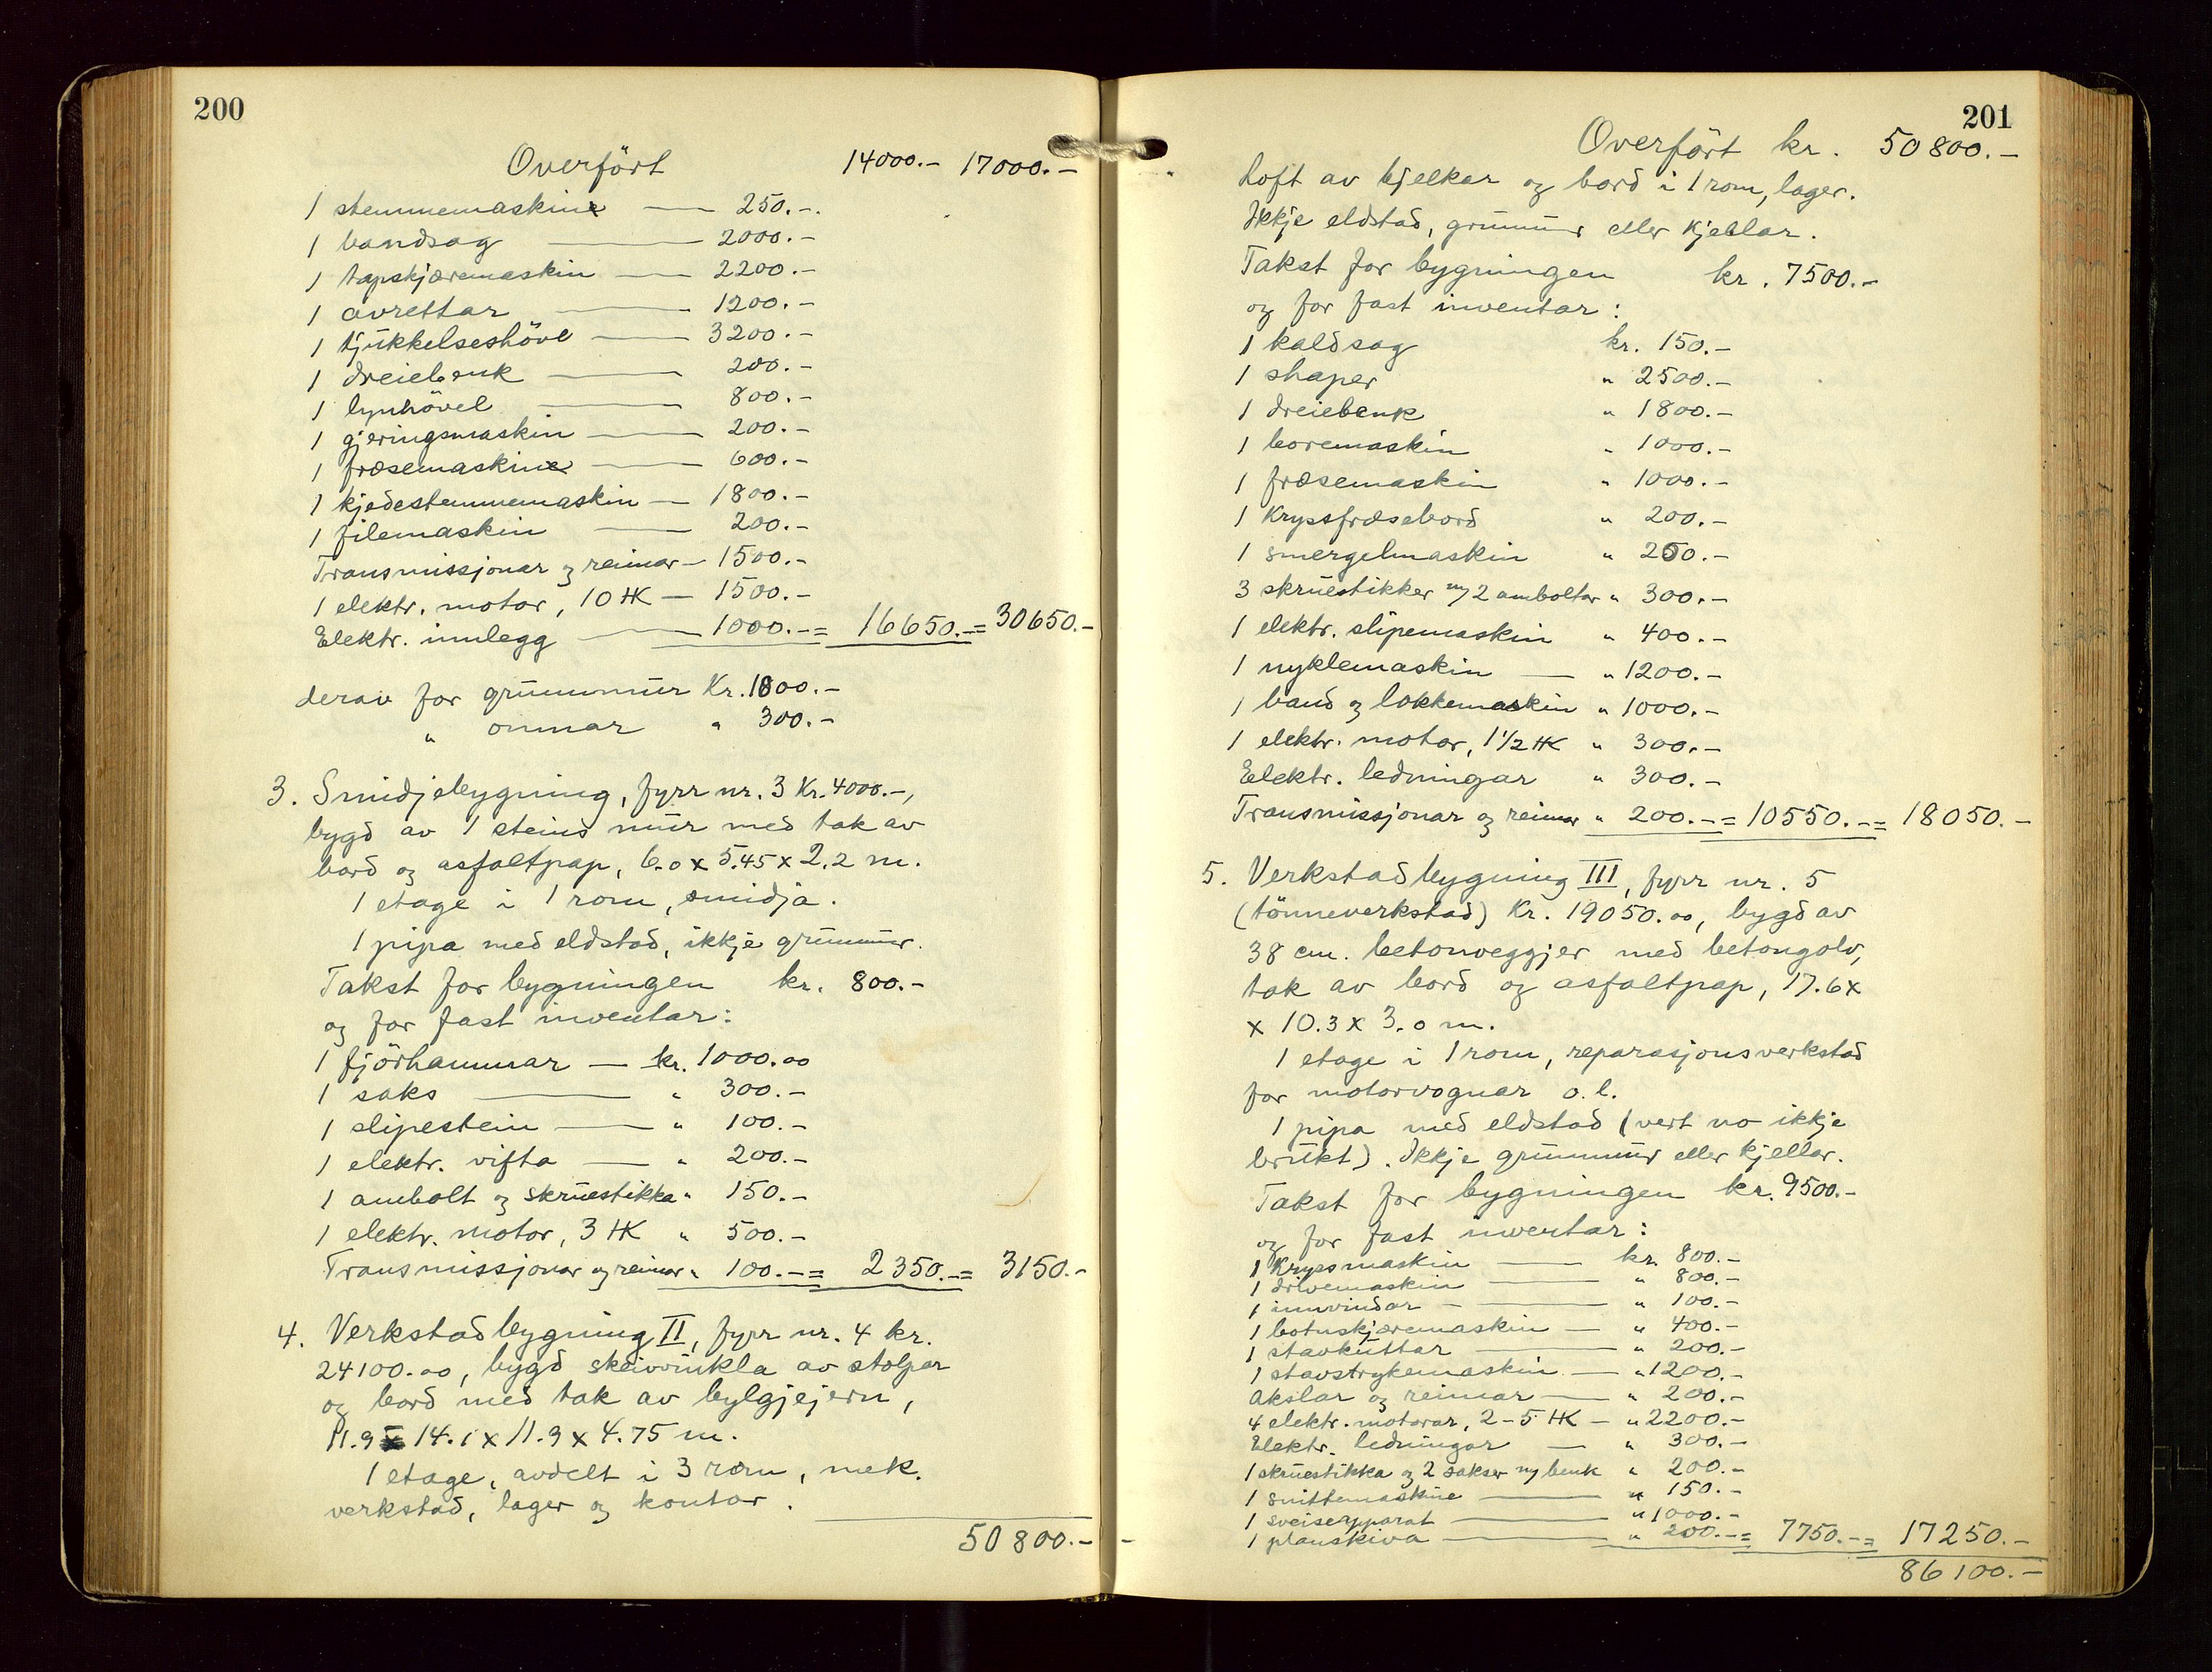 200
Overført 14000.- 17000.-
1 stemmemaskine — 250.-
1 bandsag — 2000.-
1 tapskjæremaskin — 2200.-
1 avrettar — 1200.-
1 tjukkelseshövl — 3200.-
1 dreiebenk — 200.-
1 lynhövel — 800.-
1 gjeringsmaskin — 200.-
1 fræsemaskine — 600.-
1 kjedestemmemaskin — 1800.-
1 filemaskin — 200.-
Transmissjonar og reimar — 1500.-
1 elektr. motor, 10 HK — 1500.-
Elektr. innlegg — 1000.- = 16650.- = 30650.-
derav for grunnmur Kr. 1800.-
" omnar " 300.-
3. Smidjebygning, fyrr nr. 3 Kr. 4000.-,
bygd av 1 steins mur med tak av
bord og asfaltpap, 6.0 x 5.45 x 2.2 m.
1 etage i 1 rom, smidja.
1 pipa med eldstad, ikkje grunnmur.
Takst for bygningen kr. 800.-
og for fast inventar:
1 fjörhammar — kr. 1000.00
1 saks — " 300.-
1 slipestein — " 100.-
1 elektr. vifta — " 200.-
1 ambolt og skruestikka " 150.-
1 elektr. motor, 3 HK " 500.-
Transmissjonar og reimar " 100.- = 2350.- = 3150.-
4. Verkstadbygning II, fyrr nr. 4 kr.
24100.00, bygd skeivvinkla av stolpar
og bord med tak av bylgjejern,
11.9 x 14.1 x 11.9 x 4.75 m.
1 etage, avdelt i 3 rom, mek.
verkstad, lager og kontor.
50800.-
201
Overført kr. 50800.-
Loft av bjelkar og bord i 1 rom, lager.
Ikkje eldstad, grunnmur eller kjellar.
Takst for bygningen kr. 7500.-
og for fast inventar:
1 kaldsag kr. 150.-
1 shaper " 2500.-
1 dreiebenk " 1800.-
1 boremaskin " 1000.-
1 fræsemaskin " 1000.-
1 Kryssfræsebord " 200.-
1 smergelmaskin " 200.-
3 skruestikker og 2 amboltar " 300.-
1 elektr. slipemaskin " 400.-
1 nyklemaskin — " 1200.-
1 band og lokkemaskin " 1000.-
1 elektr. motor, 1 1/2 HK " 300.-
Elektr. ledningar " 300.-
Transmissjonar og reimar " 200.- = 10550.- = 18050.-
5. Verkstadbygning III, fyrr nr. 5
(tönneverkstad) Kr. 19050.00, bygd av
38 cm. betonveggjer med betongolv,
tak av bord og asfaltpap, 17.6 x
x 10.3 x 3.0 m.
1 etage i 1 rom, reparasjonsverkstad
for motorvognar o.l.
1 pipa med eldstad (vert no ikkje
brukt). Ikkje grunnmur eller kjellar.
Takst for bygningen kr. 9500.-
og for fast inventar:
1 Kryssmaskin — kr. 800.-
1 drivemaskin — " 800.-
1 innvindar — " 100.-
1 botnskjæremaskin — " 400.-
1 stavkuttar — " 200.-
1 stavstrykemaskin — " 1200.-
Akslar og reimar — " 200.-
4 elektr. motorar, 2-5 HK — " 2200.-
Elektr. ledningar — " 300.-
1 skruestikka og 2 sakser m/ benk " 200.-
1 snittemaskine — " 150.-
1 sveiseapparat — " 1000.-
1 planskiva — " 200.- = 7750.- = 17250.-
86100.-